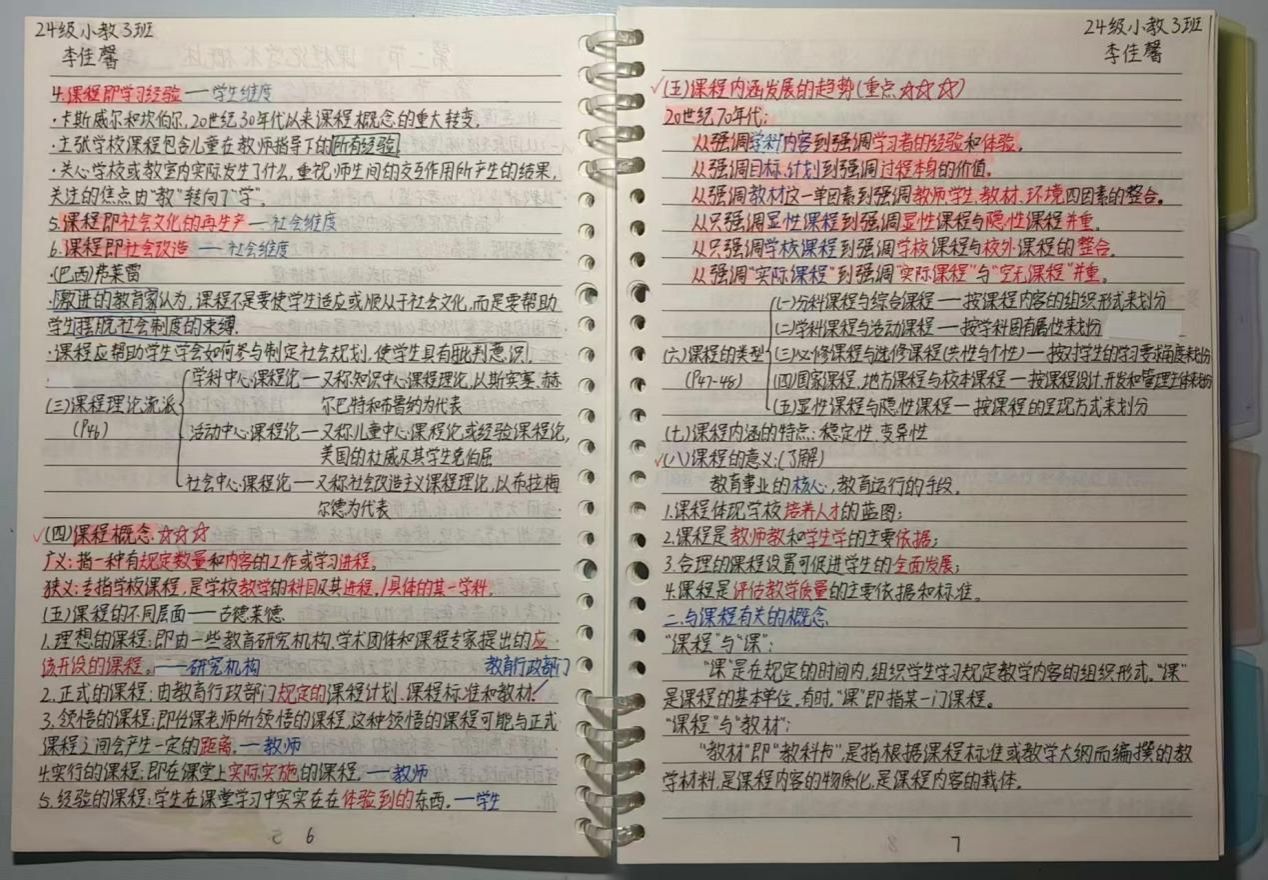 24级小教3班
李佳馨
4.课程即学习经验——学生维度
·卡斯威尔和坎伯尔,20世纪30年代以来课程概念的重大转变,
·主张学校课程包含儿童在教师指导下的所有经验,
·关心学校或教室内实际发生了什么,重视师生间的交互作用所产生的结果,
关注的焦点由"教"转向了"学"。
5.课程即社会文化的再生产——社会维度
6.课程即社会改造——社会维度
·(巴西)弗莱雷
·激进的教育家认为,课程不是要使学生适应或顺从于社会文化,而是要帮助
学生摆脱社会制度的束缚.
·课程应帮助学生学会如何参与制定社会规划,使学生具有批判意识,
学科中心课程论——又称知识中心课程理论,以斯宾塞、赫
(三)课程理论流派 尔巴特和布鲁纳为代表
(P46) 活动中心课程论——又称儿童中心课程论或经验课程论,
美国的杜威及其学生克伯屈
社会中心课程论——又称社会改造主义课程理论,以布拉梅
尔德为代表
✓(四)课程概念☆☆☆
广义:指一种有规定数量和内容的工作或学习进程。
狭义:专指学校课程,是学校教学的科目及其进程。/具体的某一学科
(五)课程的不同层面——古德莱德
1.理想的课程:即由一些教育研究机构、学术团体和课程专家提出的应
该开设的课程。——研究机构 教育行政部门
2.正式的课程:由教育行政部门规定的课程计划、课程标准和教材/
3.领悟的课程:即任课老师所领悟的课程,这种领悟的课程可能与正式
课程之间会产生一定的距离,—教师
4.实行的课程:即在课堂上实际实施的课程,—教师
5.经验的课程:学生在课堂学习中实实在在体验到的东西。—学生
6
24级小教3班
李佳馨
✓(五)课程内涵发展的趋势(重点☆☆☆)
20世纪70年代:
从强调学科内容到强调学习者的经验和体验。
从强调目标、计划到强调过程本身的价值。
从强调教材这一单因素到强调教师、学生、教材、环境四因素的整合。
从只强调显性课程到强调显性课程与隐性课程并重。
从只强调学校课程到强调学校课程与校外课程的整合。
从强调"实际课程"到强调"实际课程"与"空无课程"并重。
(一)分科课程与综合课程——按课程内容的组织形式来划分
(二)学科课程与活动课程——按学科固有属性来划份
(六)课程的类型 (三)必修课程与选修课程(共性与个性)——按对学生的学习要求角度来划份
(P47-48) (四)国家课程、地方课程与校本课程——按课程设计、开发和管理主体来划份
(五)显性课程与隐性课程——按课程的呈现方式来划分
(七)课程内涵的特点:稳定性、变异性
✓(八)课程的意义:(了解)
教育事业的核心,教育运行的手段。
1.课程体现学校培养人才的蓝图;
2.课程是教师教和学生学的主要依据;
3.合理的课程设置可促进学生的全面发展;
4.课程是评估教学质量的主要依据和标准。
二、与课程有关的概念
"课程"与"课":
"课"是在规定的时间内,组织学生学习规定教学内容的组织形式。"课"
是课程的基本单位,有时,"课"即指某一门课程。
"课程"与"教材":
"教材"即"教科书",是指根据课程标准或教学大纲而编撰的教
学材料,是课程内容的物质化,是课程内容的载体。
7